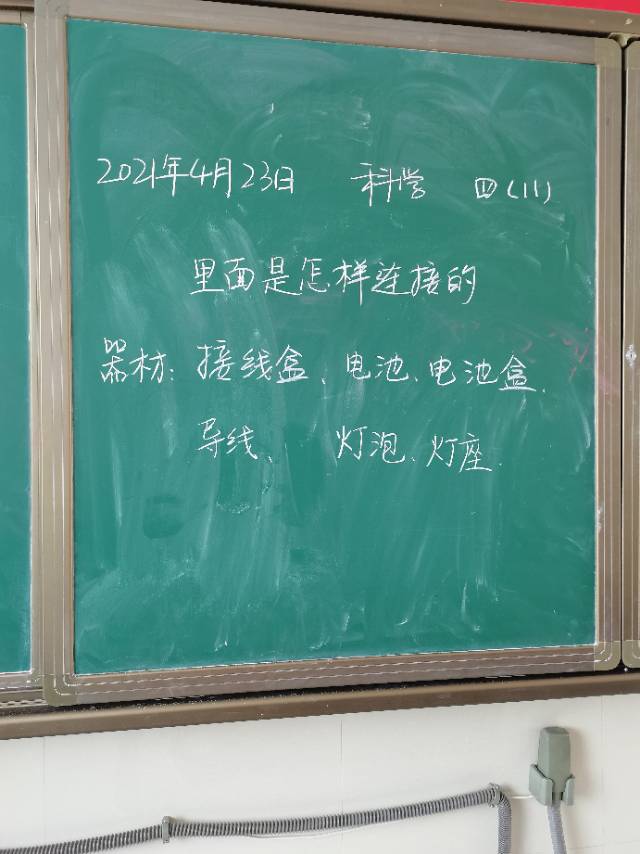 2021年4月23日 科学 四(11)
里面是怎样连接的
器材：接线盒、电池、电池盒、
导线、 灯泡、灯座.